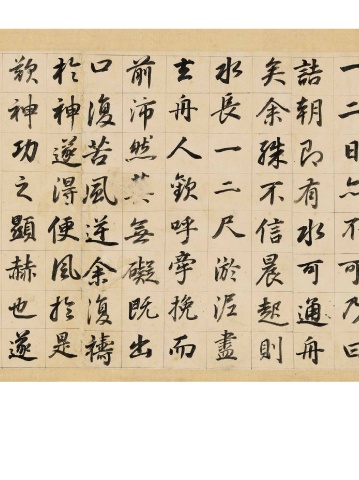 一二日不可乃曰
詰朝即有水可通舟
矣余殊不信晨起則
水長一二尺淤泥盡
去舟人歡呼牽挽而
前沛然其無礙既出
口復苦風逆余復禱
於神遂得便風於是
歎神功之顯赫也遂